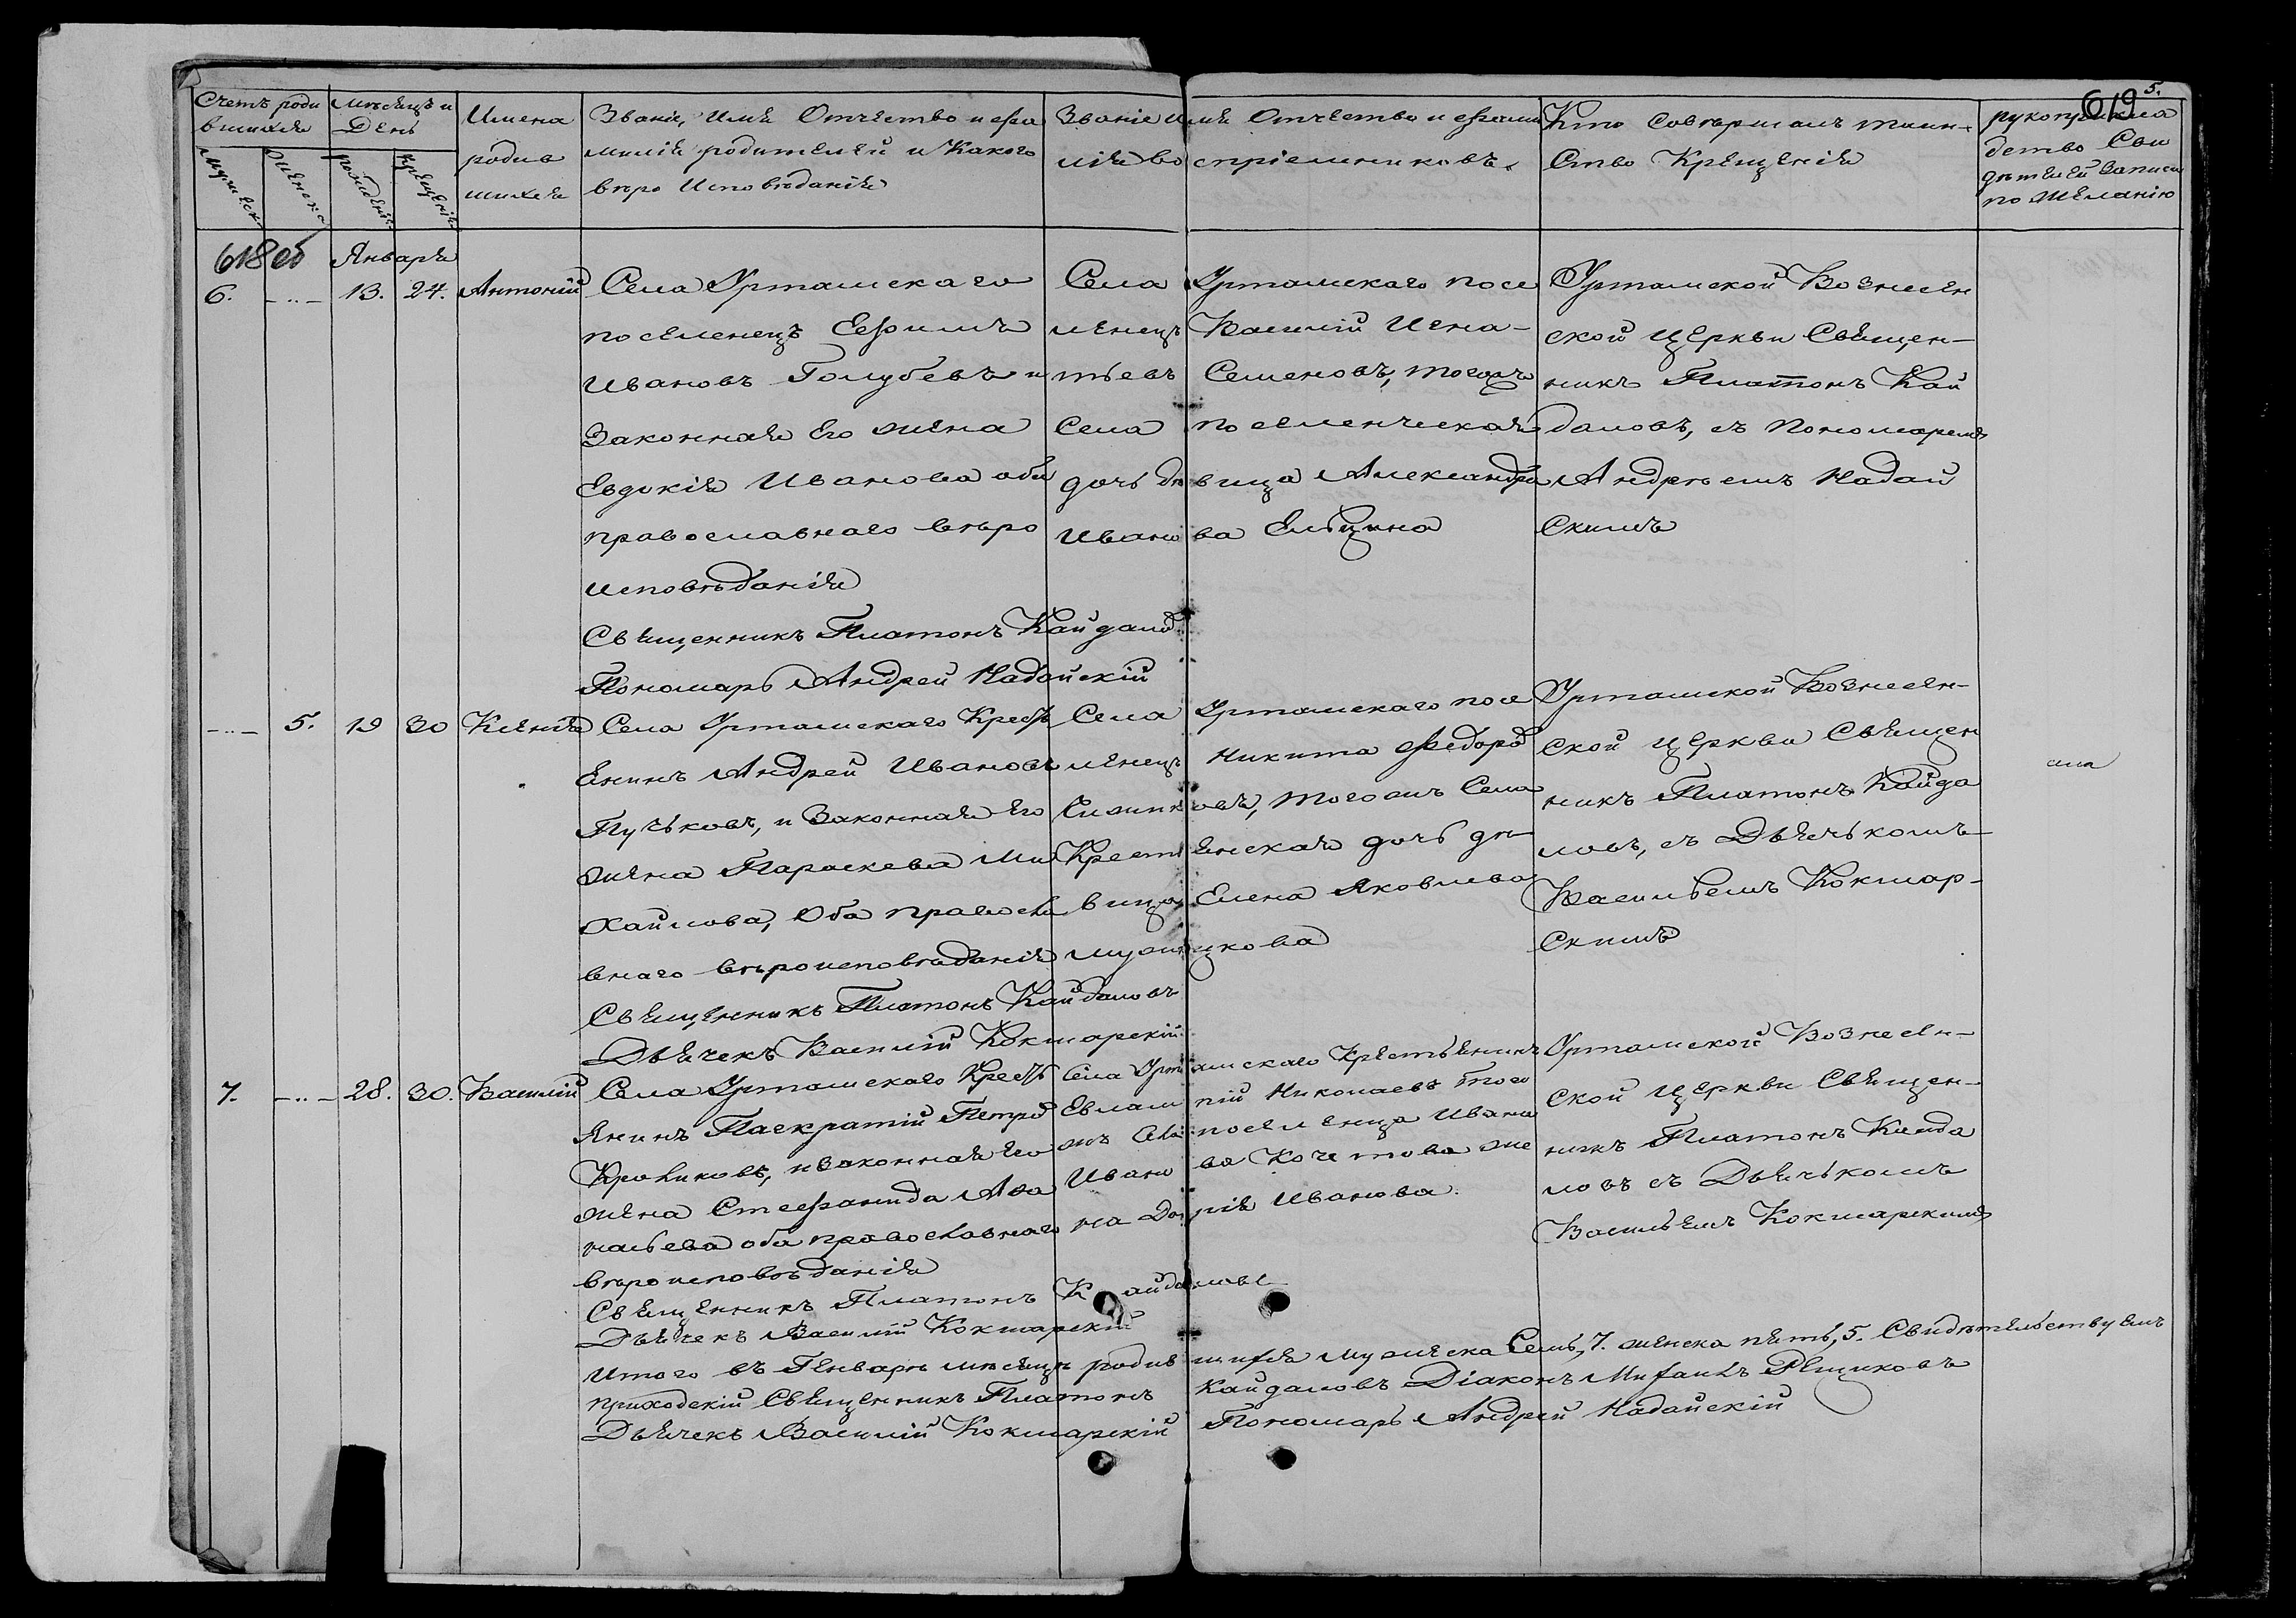 5.
619
Счетъ роди
вшихся
Мѣсяцъ и
День
Имена
родив
шихся
Званіе, Имя Отчество и фа
милія родителей и Какого
вѣро Исповѣданія
Званіе Имя Отчество и фами
лія воспріемниковъ.
Кто Совершалъ таин-
Ство Крещенія
рукоприкла
детво Сви
дѣтелей Записи
по Желанію
Мужеска
Женска
рожденія
крещенія
618 об
Января
6.
13.
24.
Антоній
Села Уртамскаго
поселенецъ Ефимъ
Ивановъ Голубевъ и
Законная Его жена
Евдокія Иванова оба
православнаго вѣро
исповѣданія
Священникъ Платонъ Кайдало
Пономарь Андрей Надайскій
Села Уртамскаго посе
ленецъ Василій Игна-
тьевъ Семеновъ, тогожъ
Села поселенческая
дочь дѣвица Александра
Иванова Ельцина
Уртамской Вознесен
ской Церкви Священ-
никъ Платонъ Кай
даловъ, съ Пономаремъ
Андреемъ Надай
Скимъ
5.
19
30
Ксенія
Села Уртамскаго Кресть
Енинъ Андрей Ивановъ
Пучьковъ, и Законная Его
жена Параскева Ми
хайлова, Оба правосла
внаго вѣроисповѣданія
Священникъ Платонъ Кайдаловъ
Дьячекъ Василій Кокшарскій
Села Уртамскаго посе
ленецъ Никита Федоро
овъ, тогожъ Села
Крестьенская дочь дѣ-
вица Елена Яковлева
Уртамской Вознесен-
ской церкви Священ
никъ Платонъ Кайда
ловъ, съ Дьячькомъ
Васильемъ Кокшар-
Скимъ
7.
28.
30.
Василій
Села Уртамскаго Кресть
Янинъ Паскратій Петро
Кроликовъ, и Законная Его
жена Стефанида Афа
насьева оба православнаго
вѣроисповѣданія
Священникъ Платонъ Кайдаловъ
Дьячекъ Василій Кокшарскій
Села Уртамскаго Крестьенинъ
Евлампій Николаевъ того
жъ Села поселенца Ивана
Иванова Кочетова же
на Дарія Иванова.
Уртамской Вознесен-
ской Церкви Священ-
никъ Платонъ Кайда
ловъ съ Дьячькомъ
Васильемъ Кокшарскимъ
Итого въ Генварѣ мѣсяцѣ родившихся мужеска Семь, 7. женска пять, 5. Свидѣтельствуемъ
приходскій Священникъ Платонъ Кайдаловъ Діаконъ Михаилъ
Дьячекъ Василій Кокшарскій Пономарь Андрей Надайскій